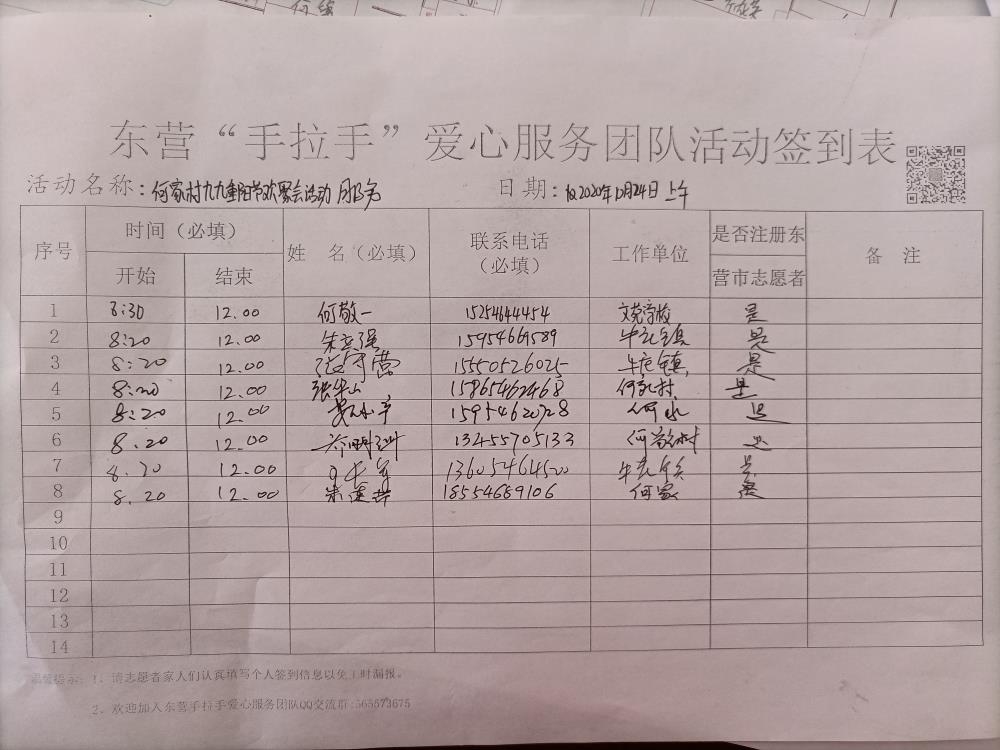 东营“手拉手”爱心服务团队活动签到表
活动名称：何家村九九重阳节欢聚会活动 日期：2020年10月24日 上午
序号 时间（必填） 姓 名（必填） 联系电话（必填） 工作单位 是否注册东营市志愿者 备 注
开始 结束
1 8:30 12.00 何敬一 15254644454 是
2 8:20 12.00 15954669589 牛庄镇 是
3 8:20 12.00 15550526025 牛庄镇 是
4 8:20 12.00 张华山 15865462468 何家村 是
5 8:20 12.00 15954620728 是
6 8.20 12.00 13455705133 是
7 8.20 12.00 13605464500 是
8 8.20 12.00 18554689106 何家 是
9
10
11
12
13
14
温馨提示：1、请志愿者家人们认真填写个人签到信息以免工时漏报。
2、欢迎加入东营手拉手爱心服务团队QQ交流群:565573675